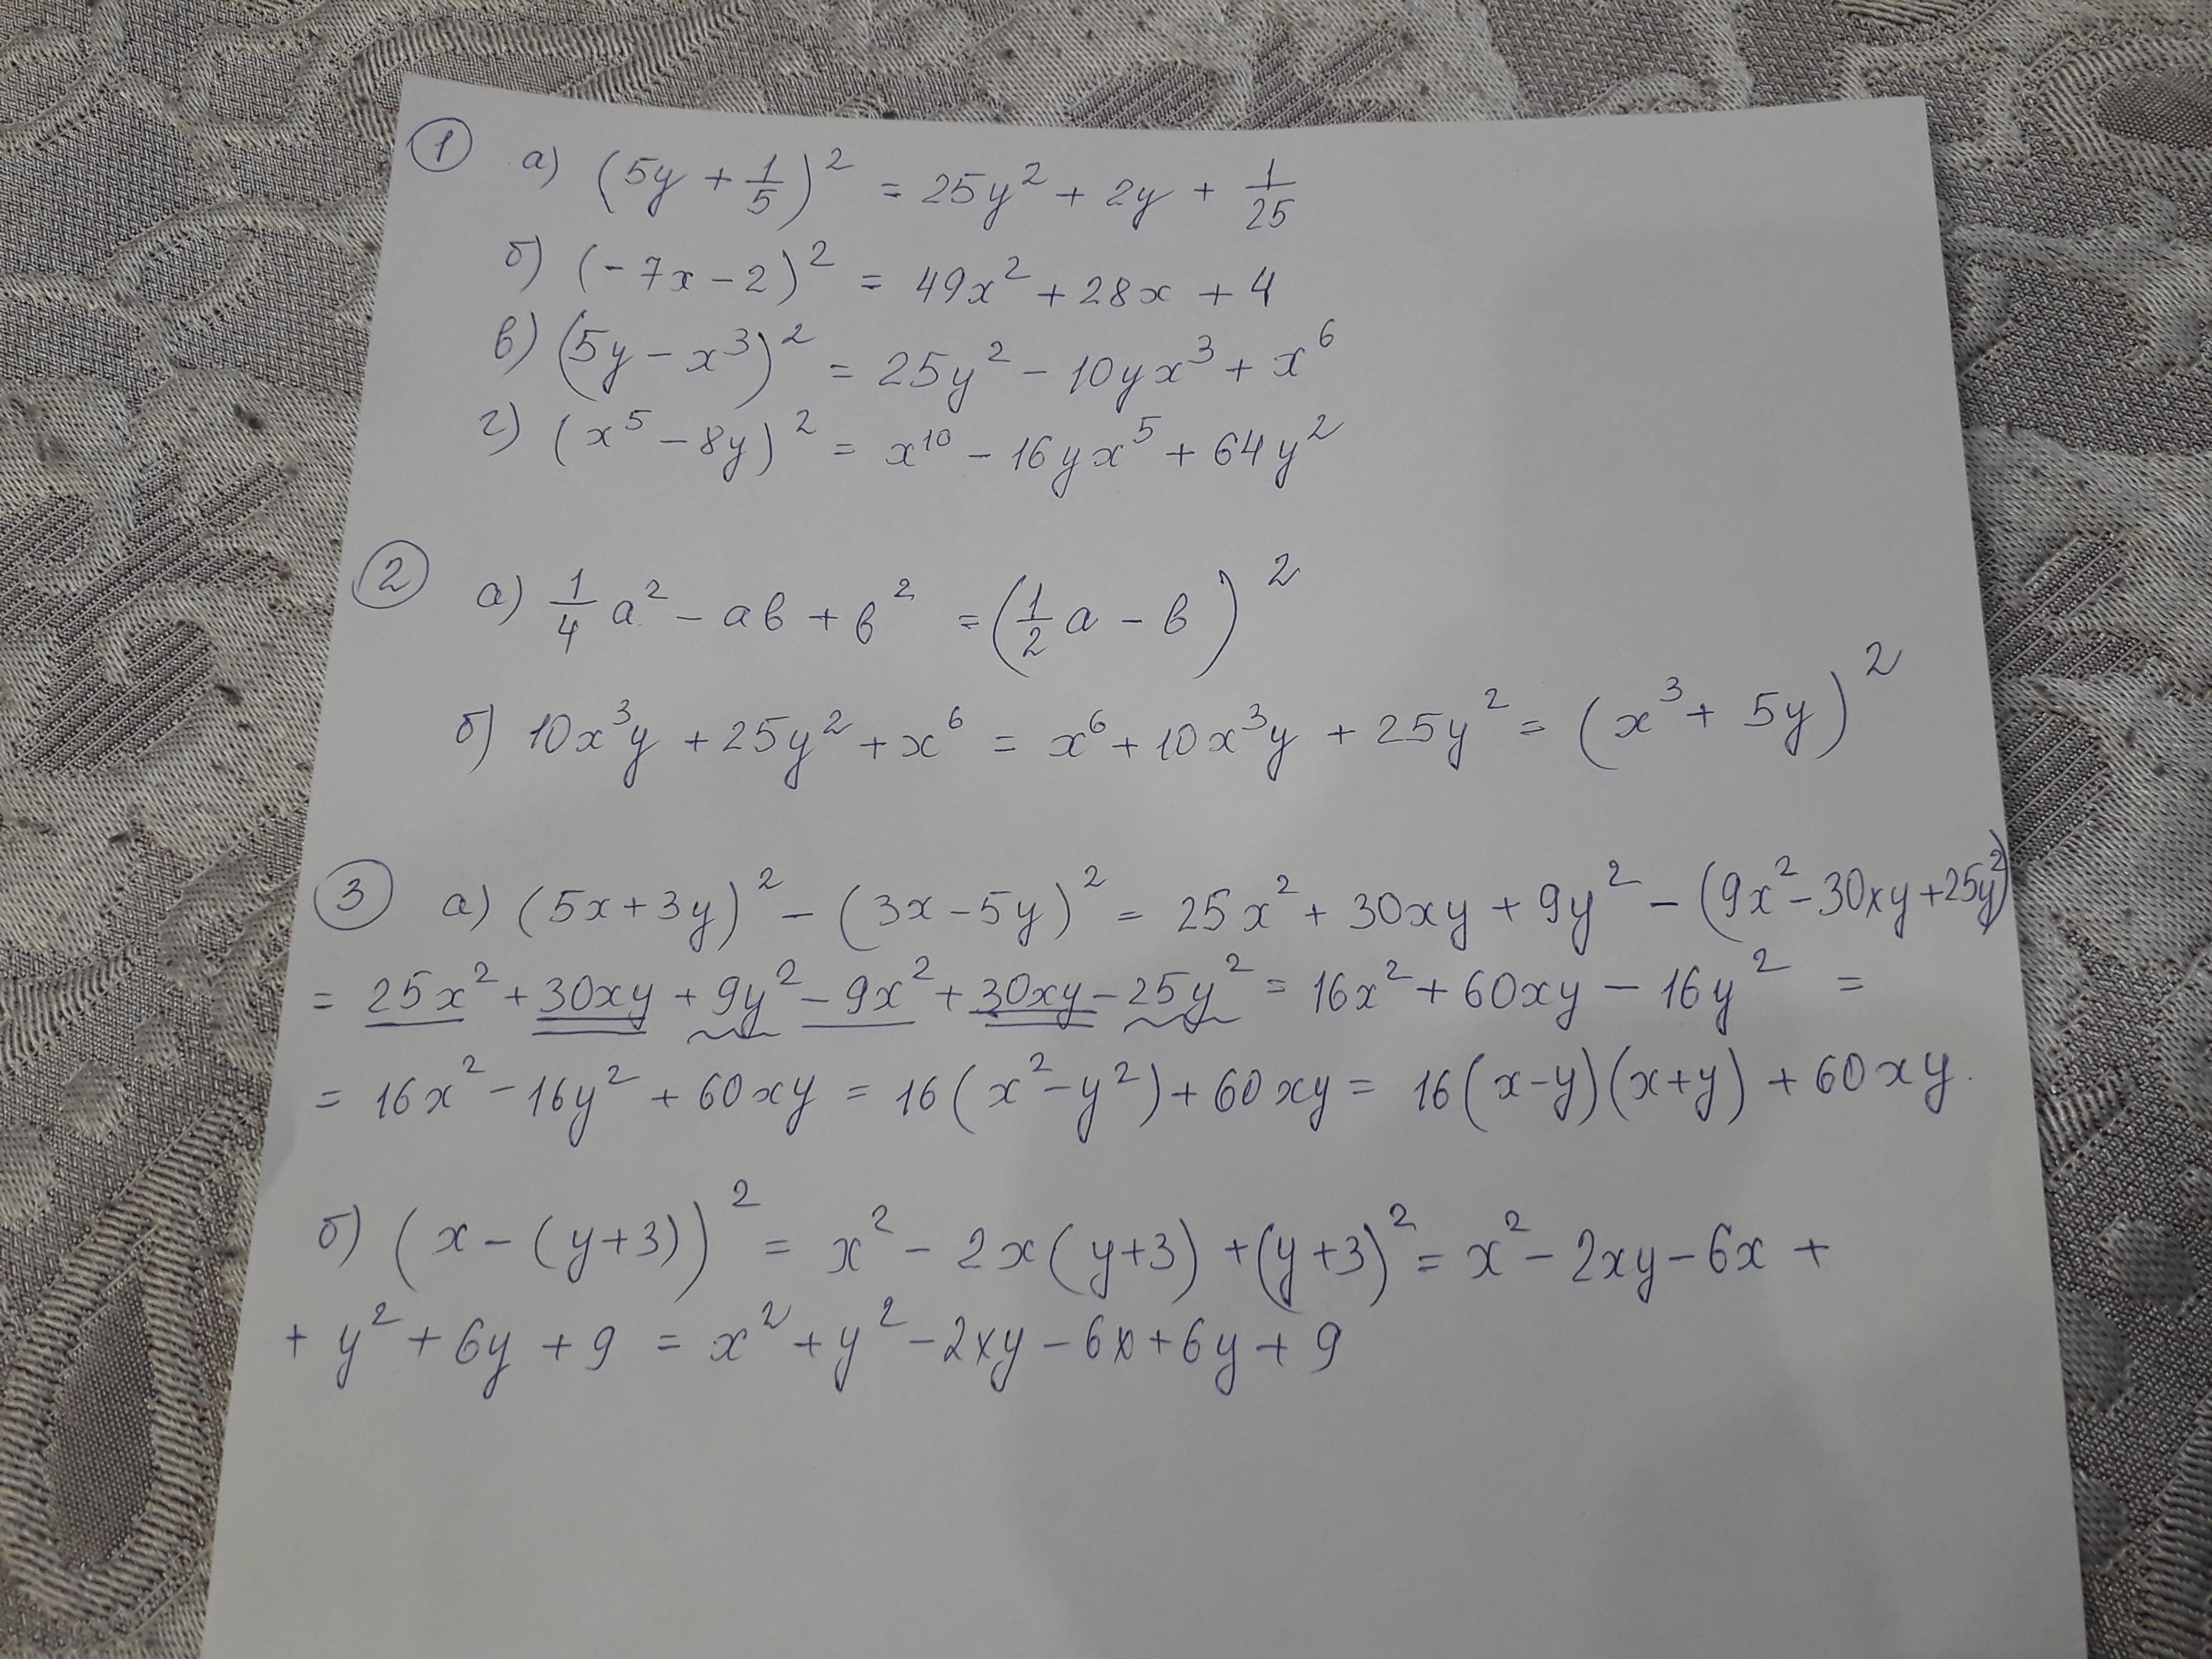 ① а) (5y + 1/5)² = 25y² + 2y + 1/25
б) (-7x - 2)² = 49x² + 28x + 4
в) (5y - x³)² = 25y² - 10yx³ + x⁶
г) (x⁵ - 8y)² = x¹⁰ - 16yx⁵ + 64y²
② а) 1/4 a² - ab + b² = (1/2 a - b)²
б) 10x³y + 25y² + x⁶ = x⁶ + 10x³y + 25y² = (x³ + 5y)²
③ а) (5x + 3y)² - (3x - 5y)² = 25x² + 30xy + 9y² - (9x² - 30xy + 25y²)
= 25x² + 30xy + 9y² - 9x² + 30xy - 25y² = 16x² + 60xy - 16y² =
= 16x² - 16y² + 60xy = 16(x² - y²) + 60xy = 16(x - y)(x + y) + 60xy.
б) (x - (y + 3))² = x² - 2x(y + 3) + (y + 3)² = x² - 2xy - 6x +
+ y² + 6y + 9 = x² + y² - 2xy - 6x + 6y + 9